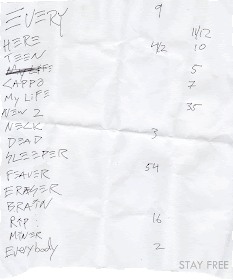 EVERY 9
11/12
HERE 4/2 10
TEEN
MY LIFE 5
CAPPO 7
MY LIFE
NEW 2 35
NECK
DEAD 3
SLEEPER
FEAVER 54
ERASER
BRAIN
RIP 16
MINER
Everybody 2
STAY FREE